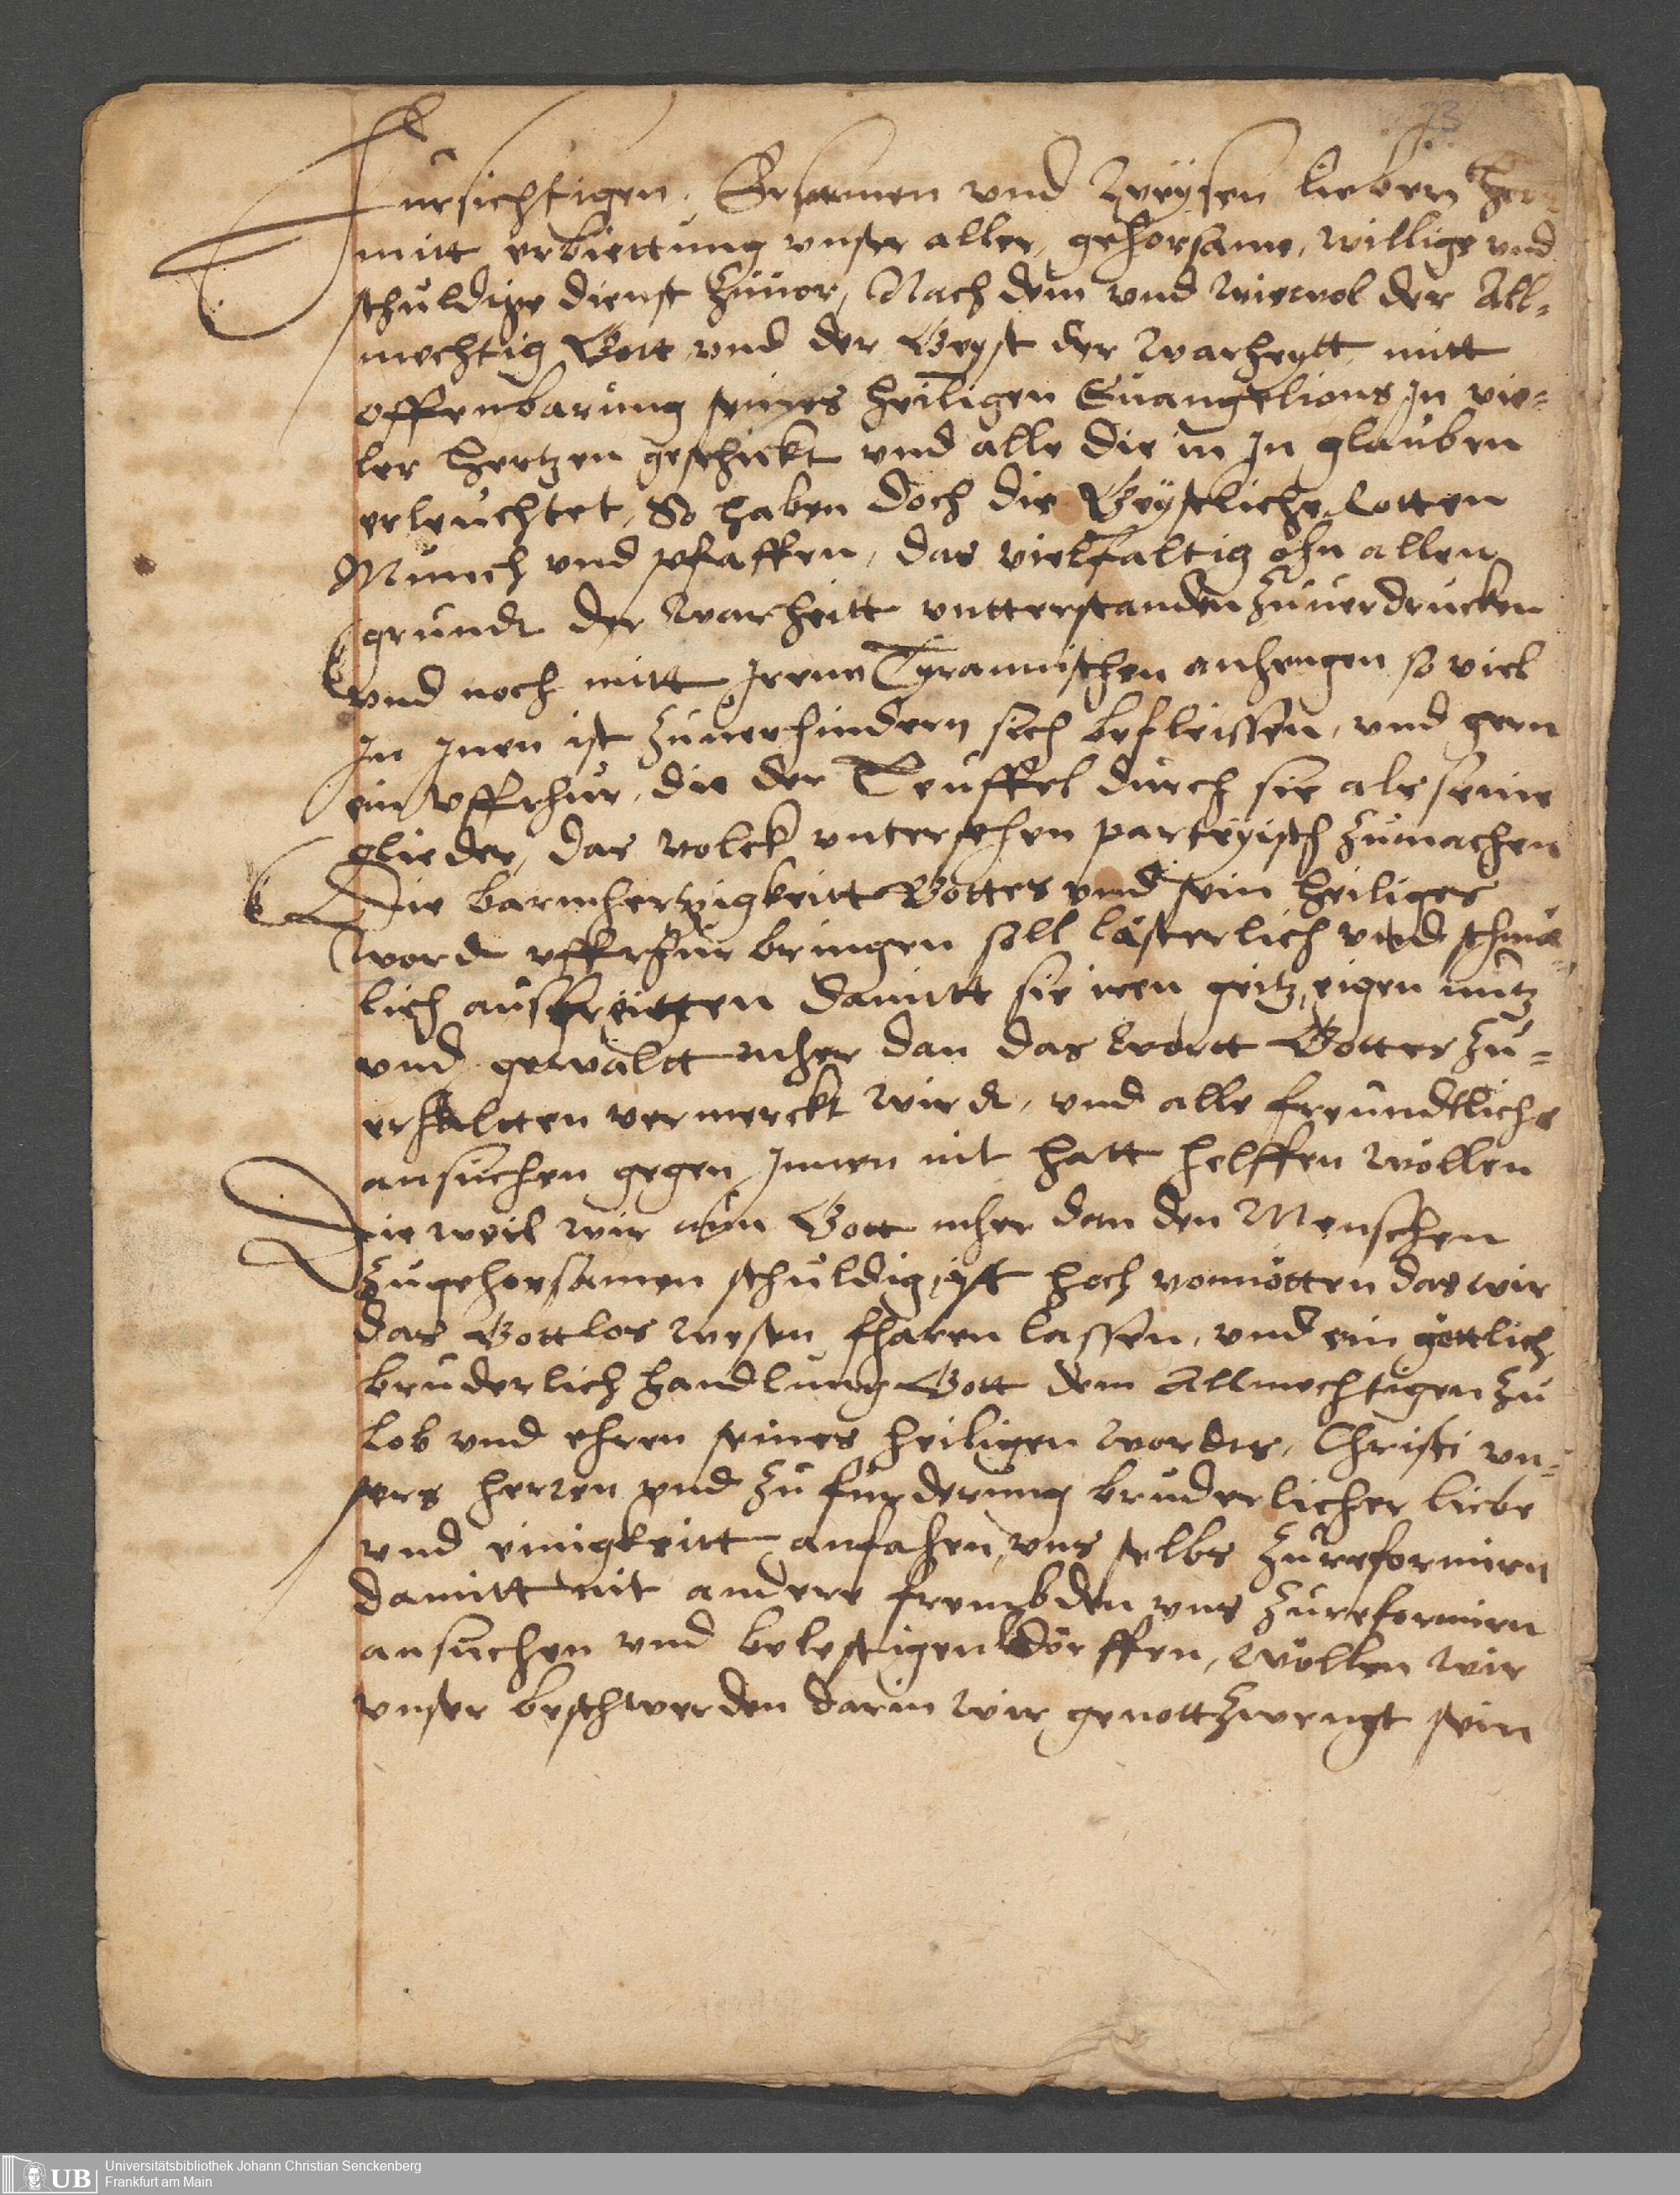 23
Fursichtigen. Ersamen vnd Weysen lieben Her-
mitt erbiettung vnser aller, gehorsame, willige vnd
schuldige dienst zuuor, Nach dem vnd wiewol der All-
mechtig Gott vnd der Geyst der warheytt mitt
offenbarung seines heiligen Euangelions In vie-
ler hertzen geschickt vnd alle die in In glauben
erleuchtet, So haben doch die Geystliche Rotten
Munch vnd pfaffen, das vielfaltig ohn allen
grundt der warheitt vntterstanden zuuerdrucken
vnd noch mitt Irem Tyrannischen anhengen so viel
In Inen ist zuuerhindern sich befleissen, vnd gern
ein vffrhur, die der Teuffel durch sie als seine
glieder, das volck vntersehen parteyisch zumachen
Die barmhertzigkeitt Gottes vnd sein heiliges
wordt vffrhur bringen soll lästerlich vnd schme-
lich damitt sie iren geitz, eigen nutz
vnd gewaltt meher dan das wortt Gottes zu-
erhaltten vermerckt wirdt, vnd alle freundtliche
ansuchen gegen Innen nit hatt helffen wöllen
Die weil wir nun Gott meher dan den Menschen
zugehorsamen schuldig, ist hoch vonnötten das wir
das Gottlos wesen fharen lassen, vnd ein gottlich
bruderlich handlung Gott dem Allmechtigen zu
lob vnd ehren seines heiligen wordes, Christi vn-
sers herren vnd zu furderung bruderlicher liebe
vnd einigkeitt anfahen, vns selbs zureformiren
damitt nit andere frembden vns zureformiren
ansuchen vnd belestigen dörffen, wöllen wir
vnser beschwerden darin wir genottzwengt sein
UB
Universitätsbibliothek Johann Christian Senckenberg
Frankfurt am Main